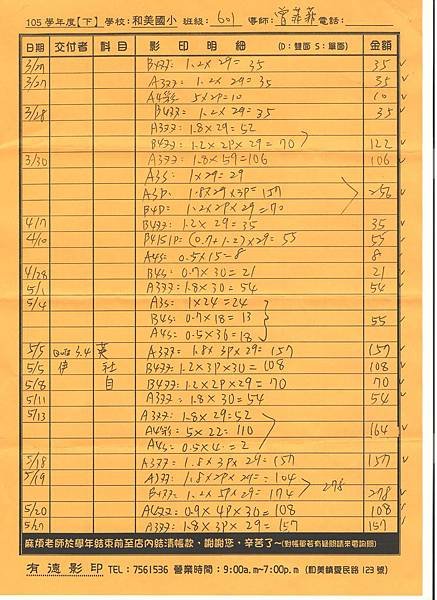 105 學年度【下】 學校: 和美國小 班級: 601 導師: 曾菲菲 電話:
日期 交付者 科目 影印明細 (D:雙面 S:單面) 金額
3/27 1.2×29=35 35
3/27 1.2×29=35 35
A4彩 5×2P=10 10
3/28 1.2×29=35 35
1.8×29=52
1.2×2P×29=70 122
3/30 1.8×59=106 106
A3S 1×29=29
A3D 1.8×29×3P=157 256
B4D 1.2×2P×29=70
4/7 1.2×29=35 35
4/10 (0.7+1.2)×29=55 55
A4S 0.5×15=8 8
4/28 B4S 0.7×30=21 21
5/1 1.8×30=54 54
5/4 A3S 1×24=24
B4S 0.7×18=13 55
A4S 0.5×36=18
5/5 英 1.8×3P×29=157 157
5/5 社 1.2×3P×30=108 108
5/8 自 1.2×2P×29=70 70
5/11 1.8×30=54 54
5/13 1.8×29=52
A4彩 5×22=110 164
A4S 0.5×4=2
5/18 1.8×3P×29=157 157
5/19 1.8×2P×29=104
1.2×5P×29=174 278 278
5/20 0.9×4P×30=108 108
5/27 1.8×3P×29=157 157
麻煩老師於學年結束前至店內結清帳款,謝謝您,辛苦了~(對帳單若有疑問請來電詢問)
有德影印 TEL:7561536 營業時間:9:00a.m~7:00p.m (和美鎮愛民路123號)